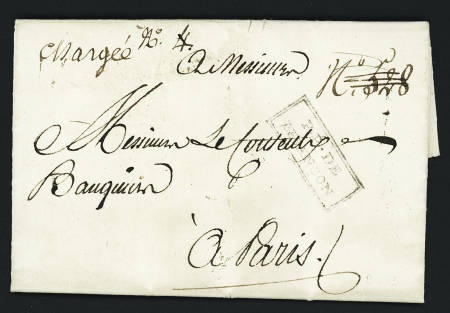 chargée N.º 4.
A Messieurs
N.º 528
Messieurs Le Couteulx
Banquiers
à Paris.